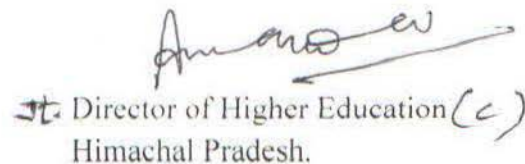 Jt. Director of Higher Education (C)
Himachal Pradesh.